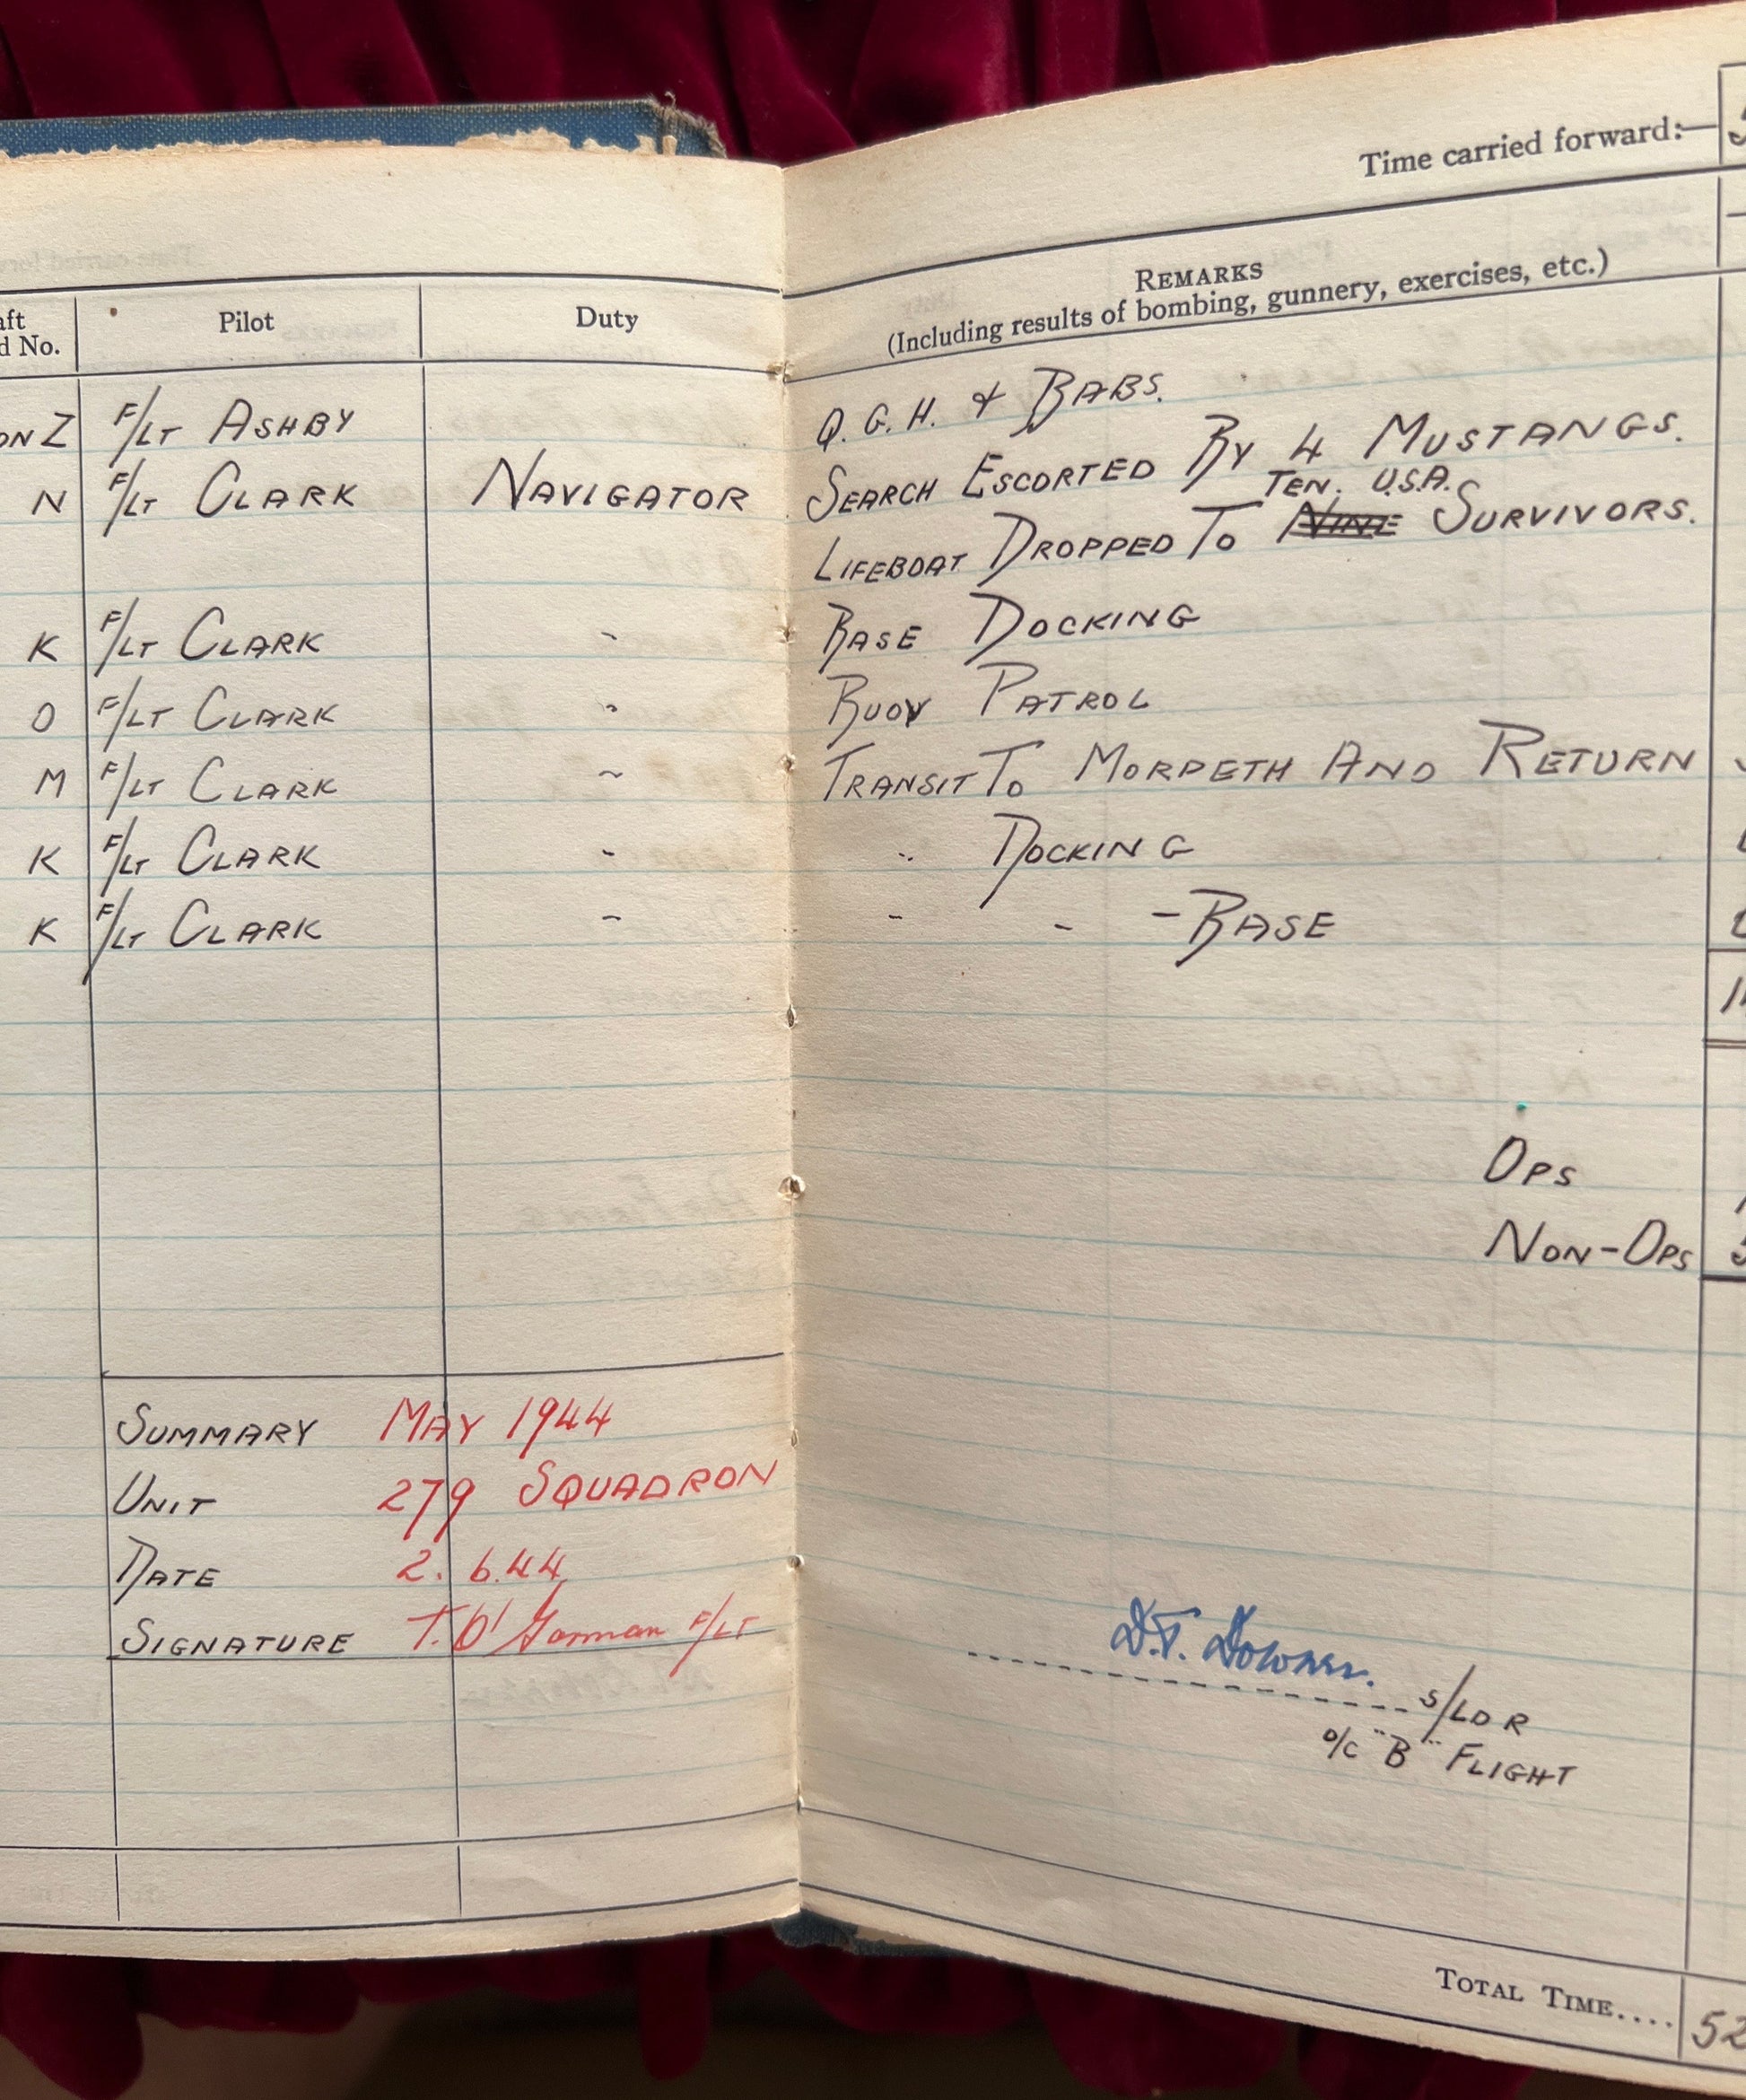 Time carried forward:—
REMARKS
(Including results of bombing, gunnery, exercises, etc.)
Pilot Duty
No.
Z F/LT ASHBY Q.G.H. & BABS.
N F/LT CLARK NAVIGATOR SEARCH ESCORTED BY 4 MUSTANGS.
TEN. U.S.A.
LIFEBOAT DROPPED TO NINE SURVIVORS.
K F/LT CLARK - BASE DOCKING
O F/LT CLARK " BUOY PATROL
M F/LT CLARK ~ TRANSIT TO MORPETH AND RETURN
K F/LT CLARK - " DOCKING
K F/LT CLARK - - - - BASE
OPS
NON-OPS
SUMMARY MAY 1944
UNIT 279 SQUADRON
DATE 2.6.44
SIGNATURE T. O'Gorman F/LT
D.T. S/LDR
O/C "B" FLIGHT
TOTAL TIME.... 52